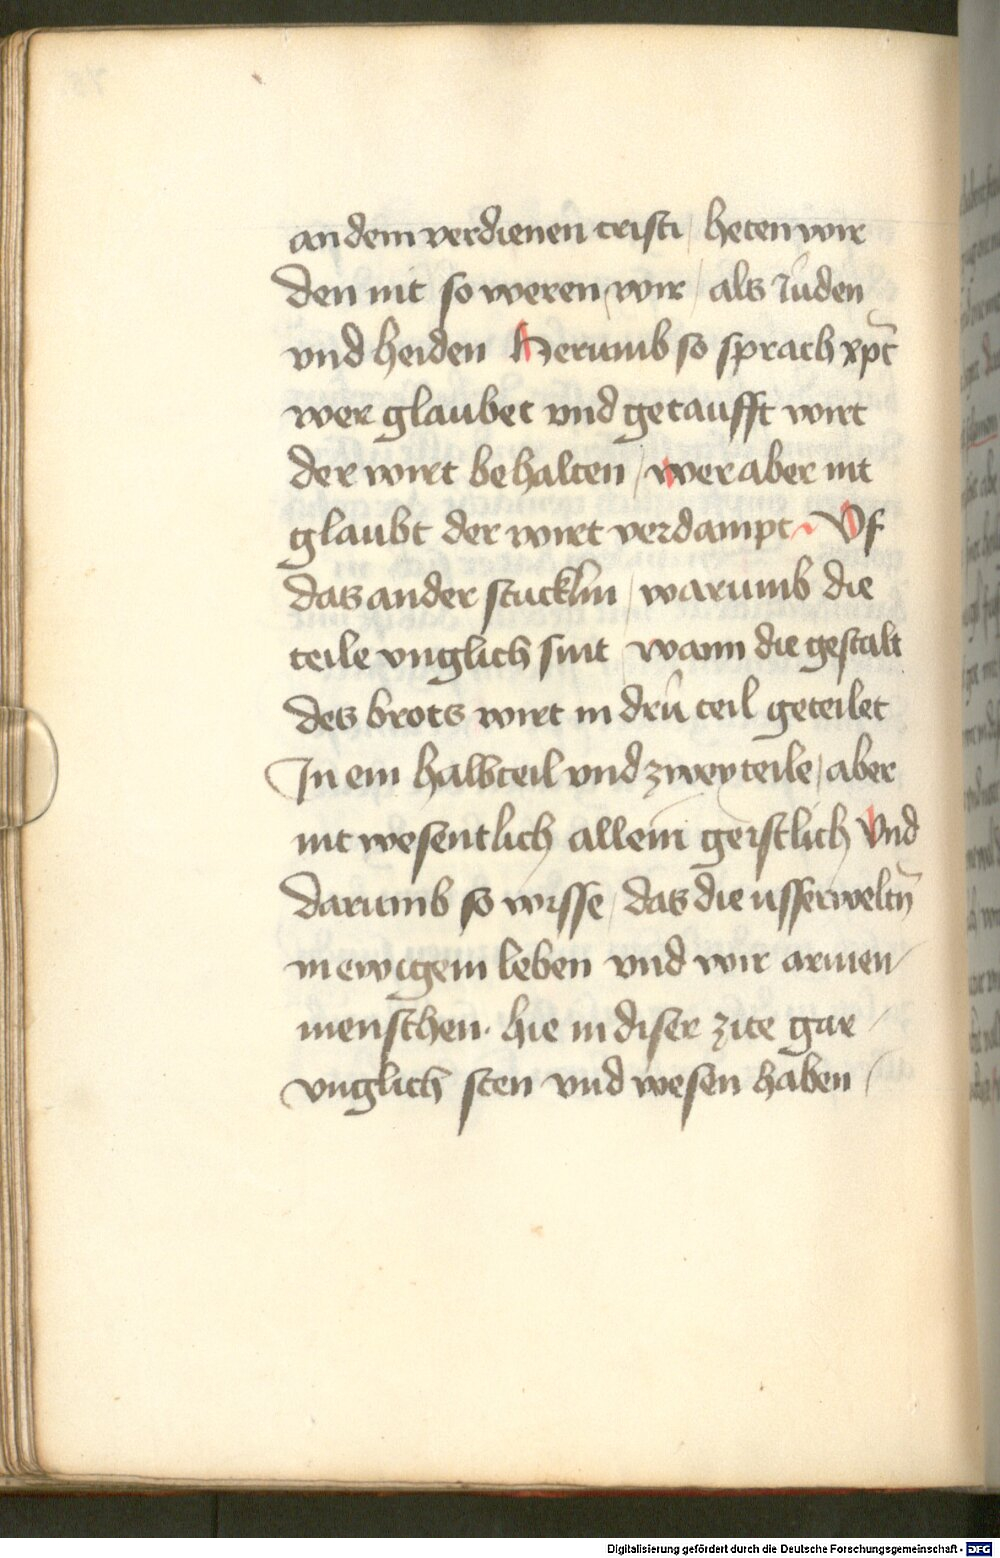 an dem verdienen cristi / heten wir
den nit so weren wir / als Juden
vnd heiden Herumb so sprach xpc̄
wer glaubet vnd getaufft wirt
der wirt behalten / wer aber nit
glaubt der wirt verdampt Vf
das ander stucklin / warumb die
teile vnglich sint wann die gestalt
des brots wirt in drű teil geteilet
In ein halbteil vnd zwey teile / aber
nit wesentlich allein geistlich Vnd
darumb so wisse / das die usserweltn̄
in ewigem leben vnd wir armen /
menschen · hie in diser zite gar /
vnglich sten vnd wesen haben /
Digitalisierung gefördert durch die Deutsche Forschungsgemeinschaft - DFG